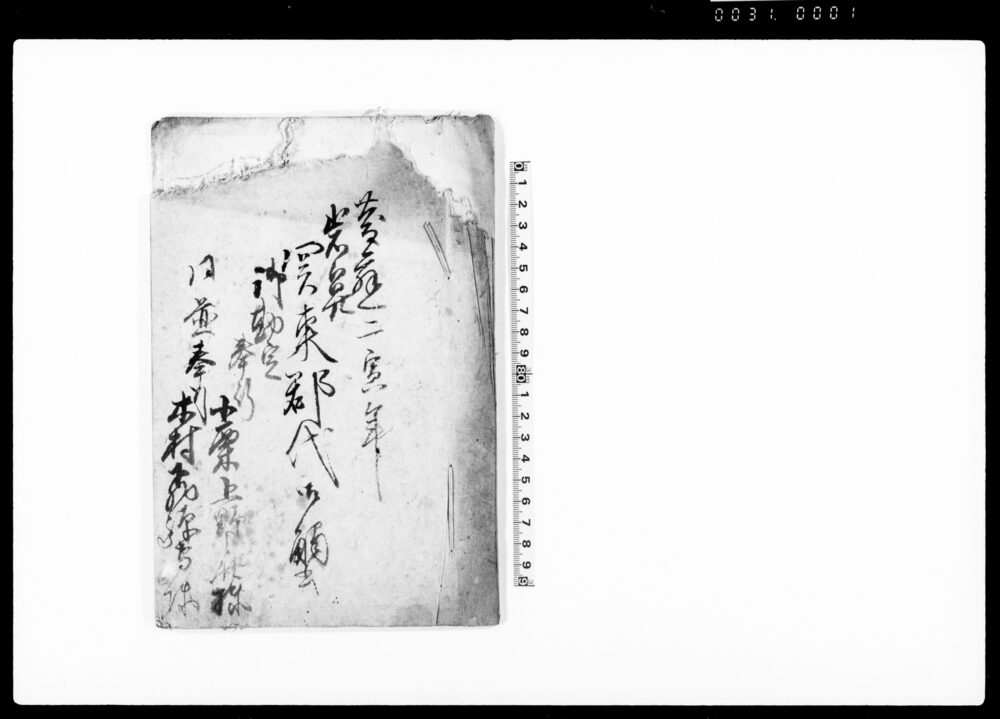 0031. 0001
慶應二寅年
岩鼻
関東郡代御觸
御勘定
奉行
小栗上野介様
同並奉行
木村 守様
0 1 2 3 4 5 6 7 8 9 10 1 2 3 4 5 6 7 8 9